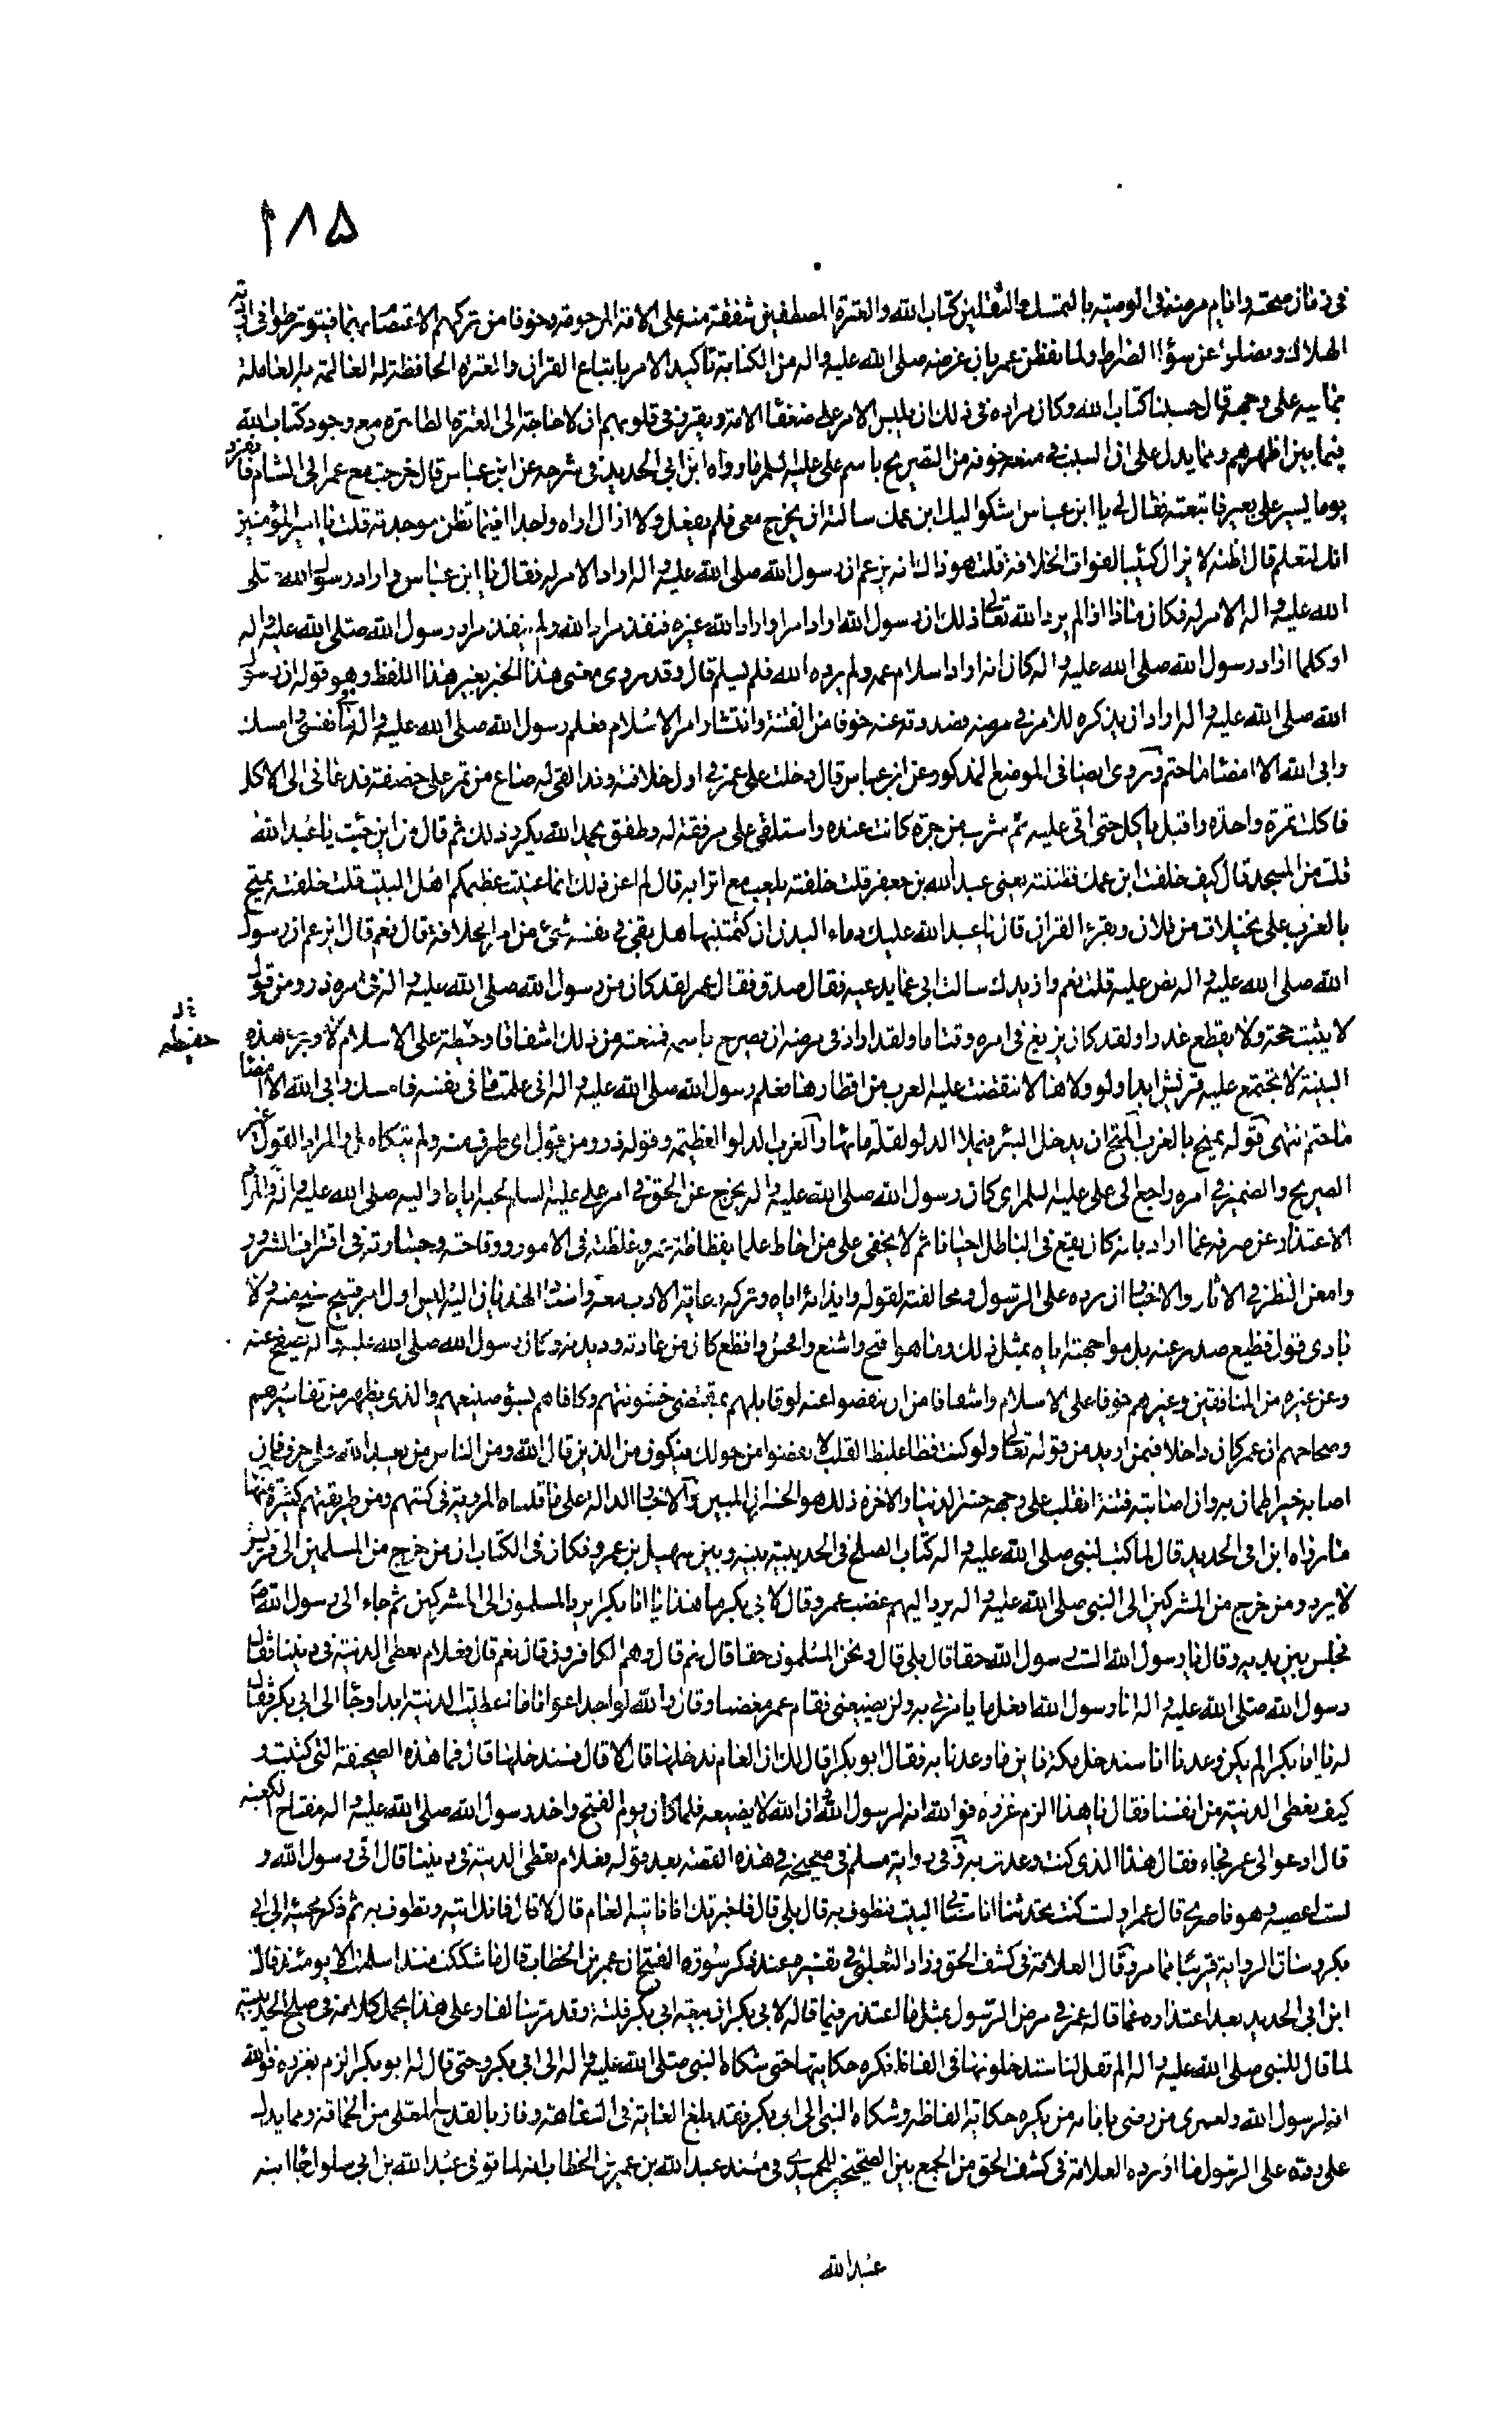 ٢٨٥
في زمان صحته وايام مرضه في الوصية بالتمسك بالثقلين كتاب الله والعترة المصطفين شفقة منه على الامة المرحومة وخوفا من تركهم الاعتصام بهما فيتورطوا في اودية
الهلاك ويضلوا عن سواء الصراط ولما تفطن عمر بان غرضه صلى الله عليه واله من الكتابة تاكيد الامر باتباع القران والعترة الحافظة له العالمة به العاملة
بما فيه على وجهه قال حسبنا كتاب الله وكان مراده في ذلك ان يلبس الامر على ضعفاء الامة ويقرر في قلوبهم ان لا حاجة الى العترة الطاهرة مع وجود كتاب الله
فيما بين اظهرهم ومما يدل على ان السبب في منعه خوفه من التصريح باسم علي عليه السلم ما رواه ابن ابي الحديد في شرحه عن ابن عباس قال خرجت مع عمر الى الشام فانفرد
يوما يسير على بعير فاتبعته فقال لي يا ابن عباس اشكو اليك ابن عمك سالته ان يخرج معي فلم يفعل ولا ازال اراه واجدا فيما تظن موجدته قلت يا امير المؤمنين
انك لتعلم قال اظنه لا يزال كئيبا لفوات الخلافة قلت هو ذاك انه يزعم ان رسول الله صلى الله عليه واله اراد الامر له فقال يا ابن عباس واراد رسول الله صلى
الله عليه واله الامر له فكان ماذا اذا لم يرد الله تعالى ذلك ان رسول الله اراد امرا واراد الله غيره فنفذ مراد الله ولم ينفذ مراد رسول الله صلى الله عليه واله
او كلما اراد رسول الله صلى الله عليه واله كان انه اراد اسلام عمه ولم يرده الله فلم يسلم قال وقد روى معنى هذا الخبر بغير هذا اللفظ وهو قوله ان رسول
الله صلى الله عليه واله اراد ان يذكره للامر في مرضه فصددته عنه خوفا من الفتنة وانتشار امر الاسلام فعلم رسول الله صلى الله عليه واله ما في نفسي وامسك
وابى الله الا امضاء ما حتم وروى ايضا في الموضع المذكور عن ابن عباس قال دخلت على عمر في اول خلافته وقد القي له صاع من تمر على خصفة فدعاني الى الاكل
فاكلت تمرة واحدة واقبل ياكل حتى اتى عليه ثم شرب من جرة كانت عنده واستلقى على مرفقة له وطفق يحمد الله يكرر ذلك ثم قال من اين جئت يا عبد الله
قلت من المسجد قال كيف خلفت ابن عمك فظننته يعني عبد الله بن جعفر قلت خلفته يلعب مع اترابه قال لم اعن ذلك انما عنيت عظيمكم اهل البيت قلت خلفته يمتح
بالغرب على نخيلات من فلان ويقرء القران قال يا عبد الله عليك دماء البدن ان كتمتنيها هل بقي في نفسه شئ من امر الخلافة قال نعم قال ايزعم ان رسول
الله صلى الله عليه واله نص عليه قلت نعم وازيدك سالت ابي عما يدعيه فقال صدق فقال عمر لقد كان من رسول الله صلى الله عليه واله في امره ذرو من قول
لا يثبت حجة ولا يقطع عذرا ولقد كان يربع في امره وقتا ما ولقد اراد في مرضه ان يصرح باسمه فمنعته من ذلك اشفاقا وحيطة على الاسلام لا ورب هذه
حفيظه
البنية لا تجتمع عليه قريش ابدا ولو ولاها لانتقضت عليه العرب من اقطارها فعلم رسول الله صلى الله عليه واله اني علمت ما في نفسه فامسك وابى الله الا امضاء
ما حتم انتهى قوله يمتح بالغرب المتح ان يدخل البئر فيملا الدلو لقلة مائها والغرب الدلو العظيمة وقوله ذرو من قول اي طرف منه ولم يتكامل والمراد القول غير
الصريح والضمير في امره راجع الى علي عليه السلم اي كان رسول الله صلى الله عليه واله يخرج عن الحق في امر علي عليه السلم لحبه اياه واليه صلى الله عليه واله والمراد
الاعتذار عن صرفه عما اراد بانه كان يقع في الباطل احيانا ثم لا يخفى على من احاط علما بفظاظة عمر وغلظته في الامور ووقاحته وجسارته في اقتراف الشرور
وامعن النظر في الاثار والاخبار ان رده على الرسول ومخالفته لقوله وايذائه اياه وتركه رعاية الادب معه واسناد الهذيان اليه ليس اول امر قبيح سنح منه ولا
بادى قول فظيع صدر عنه بل مواجهته اياه بمثل ذلك وما هو اقبح واشنع وافحش وافظع كان من عادته وديدنه وكان رسول الله صلى الله عليه واله يصفح عنه
وعن غيره من المنافقين وغيرهم خوفا على الاسلام واشفاقا من ان ينفضوا عنه لو قابلهم بمقتضى خشونتهم وكافاهم بسوء صنيعهم والذي يظهر من تفاسيرهم
وصحاحهم ان عمر كان داخلا فيمن اريد من قوله تعالى ولو كنت فظا غليظ القلب لانفضوا من حولك فيكون من الذين قال الله ومن الناس من يعبد الله على حرف فان
اصابه خير اطمان به وان اصابته فتنة انقلب على وجهه خسر الدنيا والاخرة ذلك هو الخسران المبين والاخبار الدالة على ما قلناه المروية في كتبهم ومن طريقتهم كثيرة منها
ما رواه ابن ابي الحديد قال لما كتب النبي صلى الله عليه واله كتاب الصلح في الحديبية بينه وبين سهيل بن عمرو وكان في الكتاب ان من خرج من المسلمين الى قريش
لا يرد ومن خرج من المشركين الى النبي صلى الله عليه واله يرد اليهم غضب عمر وقال لابي بكر ما هذا يا ابا بكر ايرد المسلمون الى المشركين ثم جاء الى رسول الله ص
فجلس بين يديه وقال يا رسول الله الست رسول الله حقا قال بلى قال ونحن المسلمون حقا قال نعم قال وهم الكافرون قال نعم قال فعلام نعطي الدنية في ديننا فقال
رسول الله صلى الله عليه واله انا رسول الله افعل ما يامرني به ولن يضيعني فقام عمر مغضبا وقال والله لو اجد اعوانا ما اعطيت الدنية ابدا وجاء الى ابي بكر فقال
له يا ابا بكر الم يكن وعدنا انا سندخل مكة فاين ما وعدنا به فقال ابو بكر اقال لك ان العام ندخلها قال لا قال فسندخلها قال فما هذه الصحيفة التي كتبت و
كيف نعطي الدنية من انفسنا فقال يا هذا الزم غرزه فوالله انه لرسول الله وان الله لا يضيعه فلما كان يوم الفتح واخذ رسول الله صلى الله عليه واله مفتاح الكعبة
قال ادعوا لي عمر فجاء فقال هذا الذي كنت وعدت به وفي رواية مسلم في صحيحه في هذه القصة بعد قوله فعلام نعطي الدنية في ديننا قال اني رسول الله و
لست اعصيه وهو ناصري قال عمر اولست كنت تحدثنا انا سناتي البيت فنطوف به قال بلى قال فاخبرتك انا ناتيه العام قال لا قال فانك اتيه وتطوف به ثم ذكر مجيئه الى ابي
بكر وساق الرواية قريبا مما مر وقال العلامة في كشف الحق وزاد الثعلبي في تفسيره عند ذكر سورة الفتح ان عمر بن الخطاب قال ما شككت منذ اسلمت الا يومئذ قال
ابن ابي الحديد بعد اعتذاره عما قاله عمر في مرض الرسول بمثل ما اعتذر فيما قاله لابي بكر ان بيعة ابي بكر فلتة وقد مر سالفا وعلى هذا يحمل كلامه في صلح الحديبية
لما قال للنبي صلى الله عليه واله الم تقل لنا ستدخلونها في الفاظ نكره حكايتها حتى شكاه النبي صلى الله عليه واله الى ابي بكر وحتى قال له ابو بكر الزم بغرزه فوالله
انه لرسول الله ولعمري من رضي بامامة من يكره حكاية الفاظه وشكاه النبي الى ابي بكر فقد بلغ الغاية في السفاهة وفاز بالقدح المعلى من الحماقة ومما يدل
على رده على الرسول ما اورده العلامة في كشف الحق من الجمع بين الصحيحين للحميدي في مسند عبد الله بن عمر بن الخطاب انه لما توفي عبد الله بن ابي سلول جاء ابنه
عبد الله